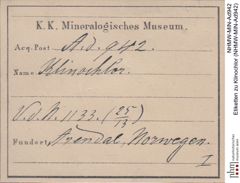 K. K. Mineralogisches Museum.
Acq. Post A. d. 942.
Name Klinochlor.
V. d. N. 1133. (25/13)
Fundort Arendal, Norwegen.
I
NHMW-MIN-Ad942
Etiketten zu Klinochlor (NHMW-MIN-Ad942)
nhm